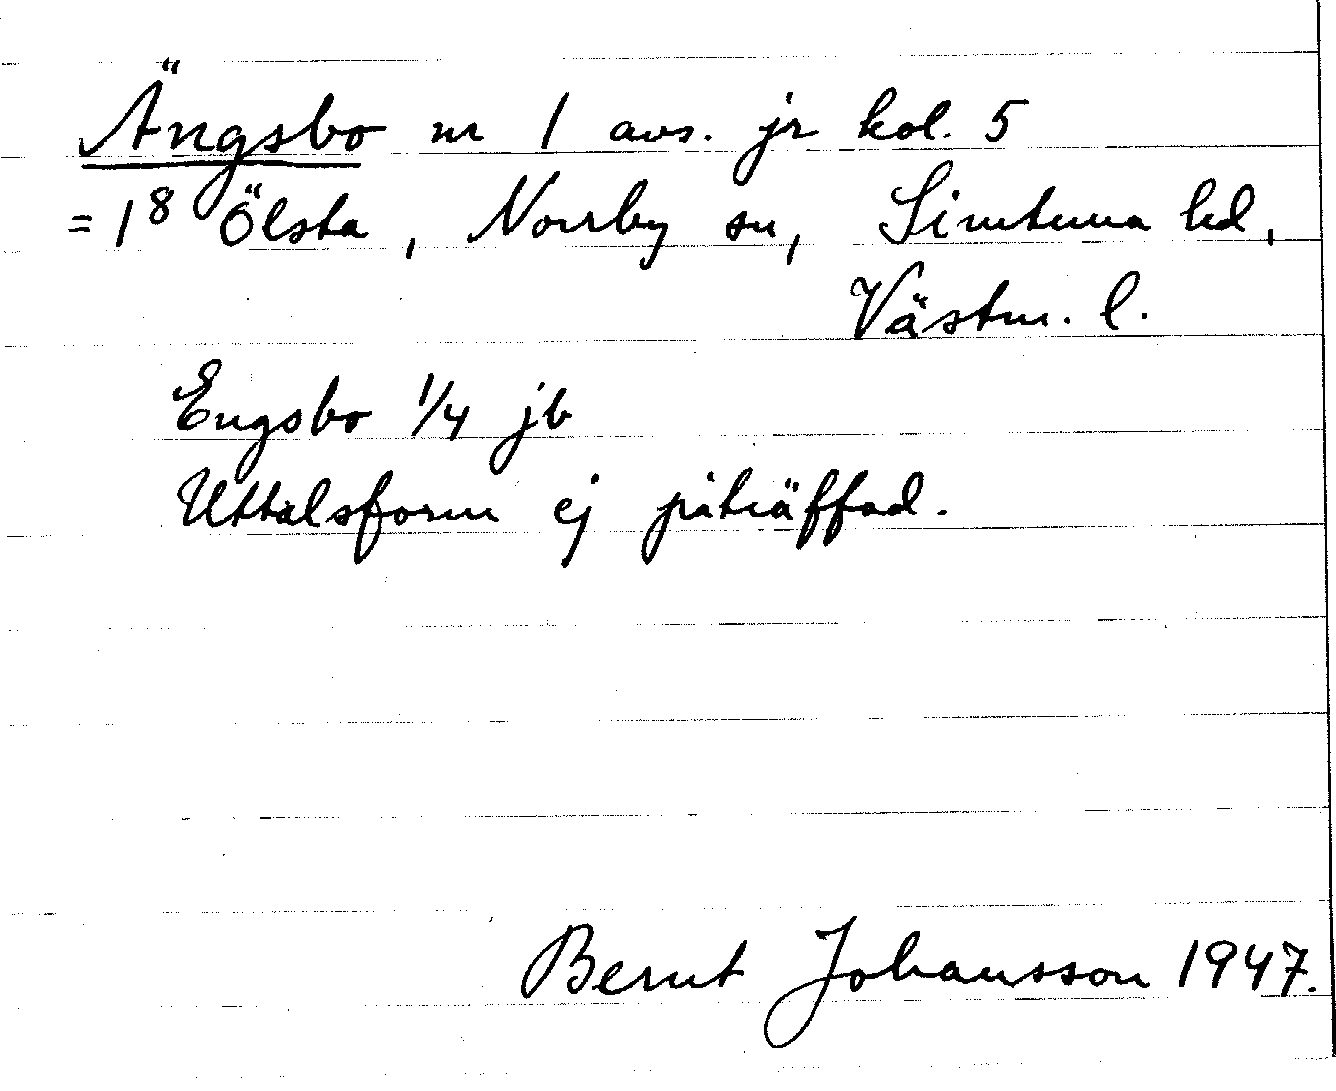 Ängsbo nr 1 avs. jr kol. 5
= 1⁸ Ölsta, Norrby sn, Simtuna hd,
Västm. l.
Engsbo 1/4 jb
Uttalsform ej påträffad.
Bernt Johansson 1947.